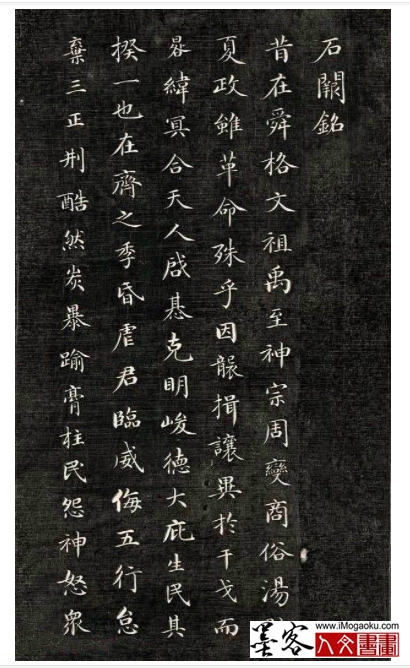 石闕銘
昔在舜格文祖禹至神宗周變商俗湯
夏政雖革命殊乎因襲揖讓異於干戈而
晷緯冥合天人啟惎克明峻德大庇生民其
揆一也在齊之季昏虐君臨威侮五行怠
棄三正刑酷然炭暴踰膏柱民怨神怒眾
www.iMogaoku.com
墨客
人文書畫